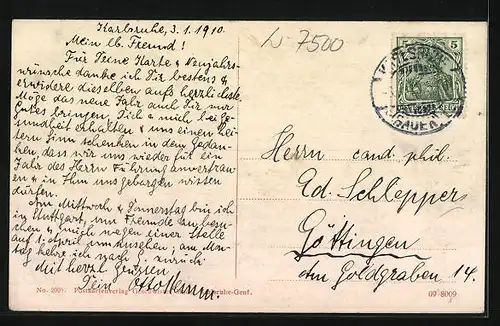 Karlsruhe, 3.1.1910.
Mein lb. Freund!
Für Deine Karte & Neujahrs-
wünsche danke ich Dir bestens &
erwidere dieselben aufs herzlichste.
Möge das neue Jahr auch Dir nur
Gutes bringen, Dich & mich bei Ge-
sundheit erhalten & uns einen hei-
tern Sinn schenken in dem Gedan-
ken, dass wir uns wieder für ein
Jahr des Herrn Führung anvertrau-
en & in Ihm uns geborgen wissen
dürfen.
Am Mittwoch & Donnerstag bin ich
in Stuttgart, um Freunde zu besu-
chen & mich wegen einer Stelle
auf 1. April umzusehen; am
tag kehre ich nach zurück.
Mit herzl. Grüssen
Dein Otto
No. 200 Postkartenverlag Karlsruhe-Genf.
W 7500
5
KARLSRUHE
Herrn cand. phil.
Ed. Schlepper
Göttingen
Am Goldgraben 14.
69 8009